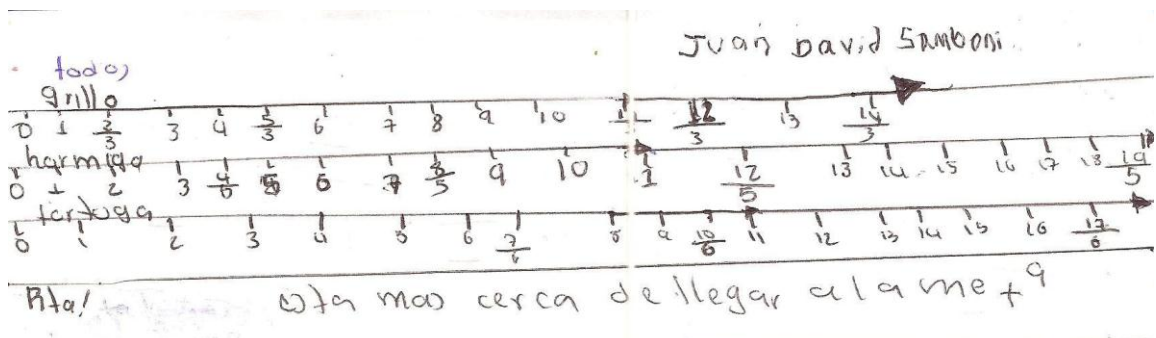 Juan David Samboni
todos
grillo
0 1 2/3 3 4 5/3 6 7 8 9 10 11 12/3 13 14/3
harmiga
0 1 2 3 4/5 5 6 7 8/5 9 10 1 12/5 13 14 15 16 17 18 19/5
tortuga
0 1 2 3 4 5 6 7/6 8 9 10/6 11 12 13 14 15 16 17/6
Rta! esta mas cerca de llegar a la meta